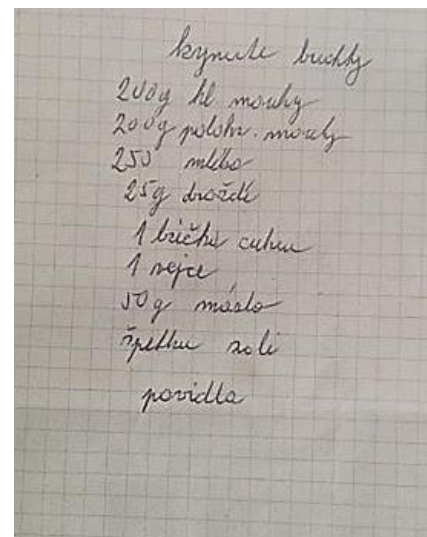 kynuté buchty
200g hl mouky
200g polohr. mouky
250 mléko
25g droždí
1 lžička cukru
1 vejce
50g máslo
špetku soli
povidla